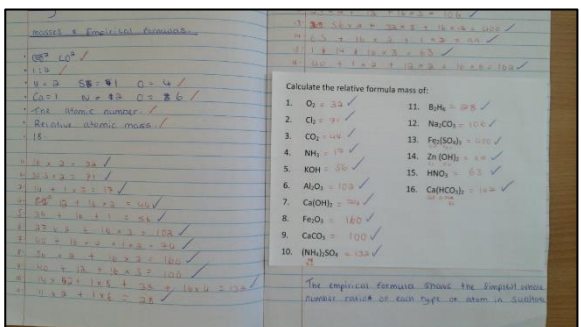 masses & Empirical formulas.
CO²
1:2
H = 2 S = 1 O = 4
Ca=1 N = 2 O = 6
The atomic number.
Relative atomic mass.
18.
16 x 2 = 32
35.5 x 2 = 71
14 + 1 x 3 = 17
12 + 16 x 2 = 44
39 + 16 + 1 = 56
27 x 2 + 16 x 3 = 102
40 + 16 x 2 + 1 x 2 = 74
56 x 2 + 16 x 3 = 160
40 + 12 + 16 x 3 = 100
11 x 2 + 1 x 6 = 28
56 x 2 + 32 x 3 + 16 x 12 = 400
1 + 14 + 16 x 3 = 63
40 + 1 x 2 + 12 x 2 + 16 x 6 = 162
Calculate the relative formula mass of:
1. O₂ = 32
2. Cl₂ = 71
3. CO₂ = 44
4. NH₃ = 17
5. KOH = 56
6. Al₂O₃ = 102
7. Ca(OH)₂ = 74
8. Fe₂O₃ = 160
9. CaCO₃ = 100
10. (NH₄)₂SO₄ = 132
11. B₂H₆ = 28
12. Na₂CO₃ = 106
13. Fe₂(SO₄)₃ = 400
14. Zn (OH)₂ = 99
15. HNO₃ = 63
16. Ca(HCO₃)₂ = 162
The empirical formula shows the simplest whole
number ratio of each type of atom in